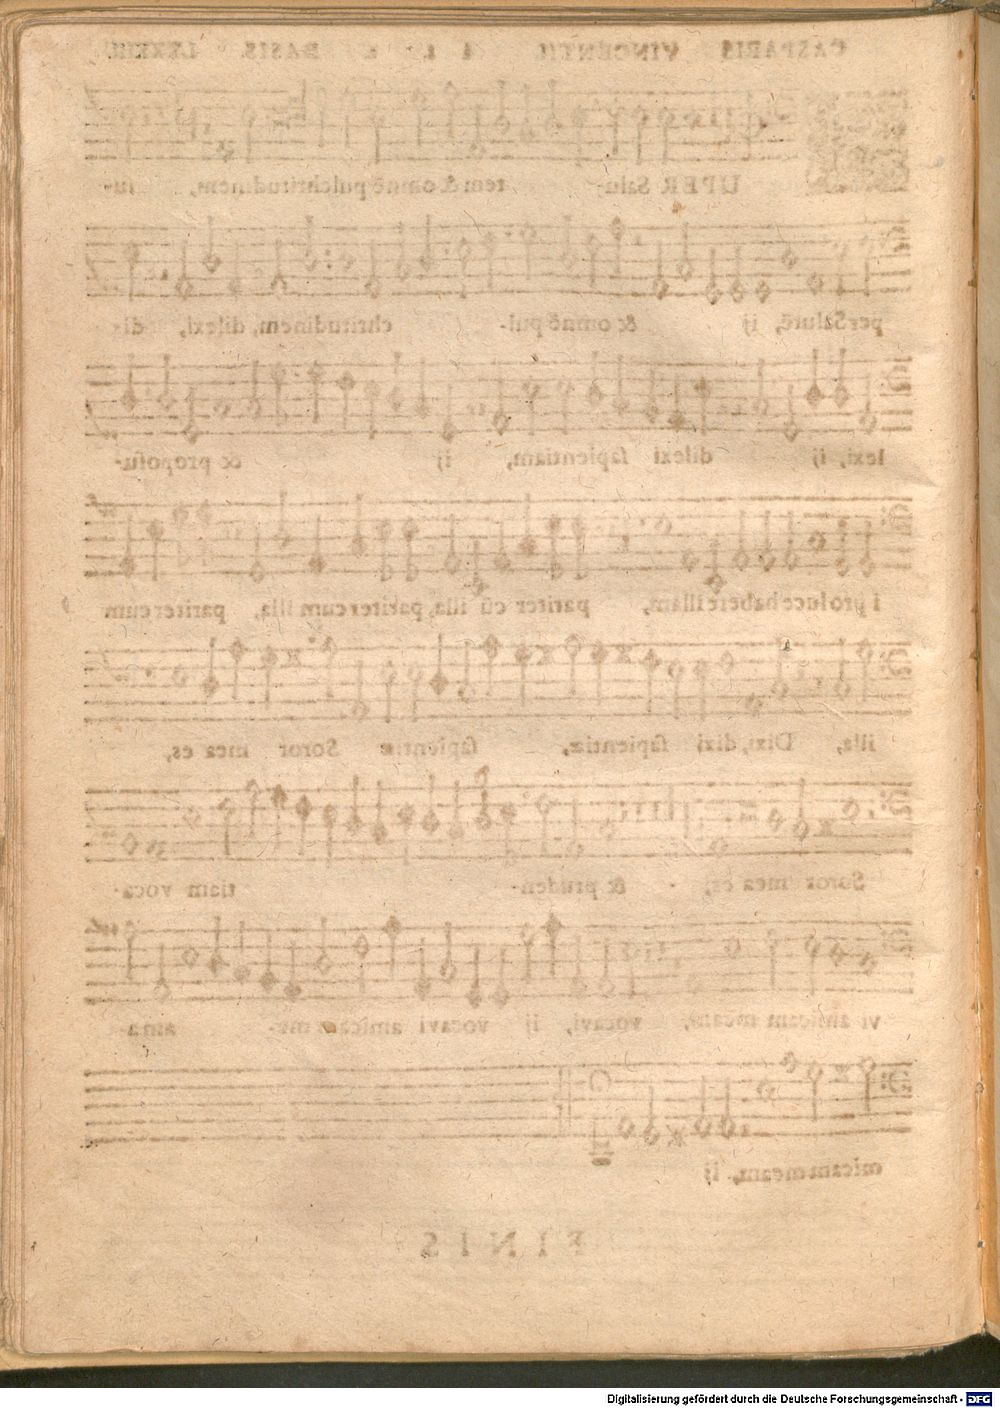 CASPARIS VINCENTII. BASIS. LXXXIII.
UPER Salu- tem & omnē pulchritudinem, su-
per Salutē, ij & omnē pul- chritudinem, dilexi, di-
lexi, ij dilexi sapientiam, ij & proposu-
i pro luce habere illam, pariter cū illa, pariter cum illa, pariter cum
illa, Dixi, dixi sapientiæ, sapientiæ Soror mea es,
Soror mea es, & pruden- tiam voca-
vi amicam meam, vocavi, ij vocavi amicam me- am a-
micam meam, ij
FINIS
Digitalisierung gefördert durch die Deutsche Forschungsgemeinschaft - DFG